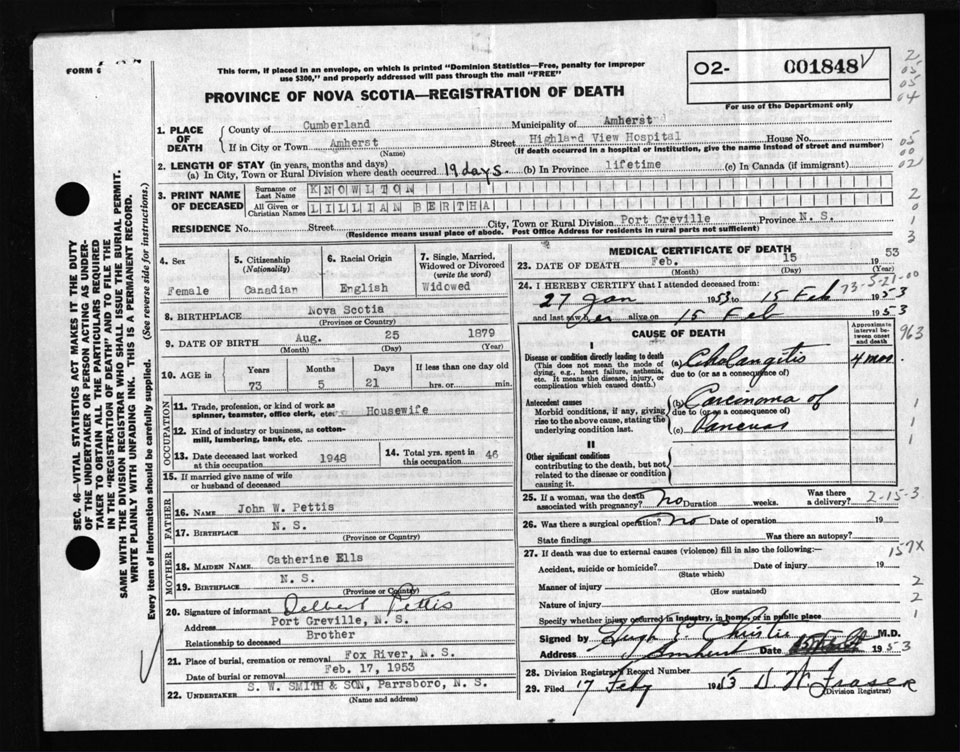 FORM 6
This form, if placed in an envelope, on which is printed "Dominion Statistics—Free, penalty for improper
use $300," and properly addressed will pass through the mail "FREE"
PROVINCE OF NOVA SCOTIA—REGISTRATION OF DEATH
O2- 001848
For use of the Department only
SEC. 46—VITAL STATISTICS ACT MAKES IT THE DUTY
OF THE UNDERTAKER OR PERSON ACTING AS UNDER-
TAKER TO OBTAIN ALL THE PARTICULARS REQUIRED
IN THE "REGISTRATION OF DEATH" AND TO FILE THE
SAME WITH THE DIVISION REGISTRAR WHO SHALL ISSUE THE BURIAL PERMIT.
WRITE PLAINLY WITH UNFADING INK. THIS IS A PERMANENT RECORD.
Every item of information should be carefully supplied. (See reverse side for instructions.)
1. PLACE OF DEATH
County of Cumberland Municipality of Amherst
If in City or Town Amherst Street Highland View Hospital House No.
(Name) (If death occurred in a hospital or institution, give the name instead of street and number)
2. LENGTH OF STAY (in years, months and days)
(a) In City, Town or Rural Division where death occurred 19 days. (b) In Province lifetime (c) In Canada (if immigrant)
3. PRINT NAME OF DECEASED
Surname or Last Name KNOWLTON
All Given or Christian Names LILLIAN BERTHA
RESIDENCE No. Street City, Town or Rural Division Port Greville Province N. S.
(Residence means usual place of abode. Post Office Address for residents in rural parts not sufficient)
4. Sex 5. Citizenship (Nationality) 6. Racial Origin 7. Single, Married, Widowed or Divorced (write the word)
Female Canadian English Widowed
8. BIRTHPLACE Nova Scotia
(Province or Country)
9. DATE OF BIRTH Aug. 25 1879
(Month) (Day) (Year)
10. AGE in Years Months Days If less than one day old
73 5 21 hrs. or min.
OCCUPATION
11. Trade, profession, or kind of work as
spinner, teamster, office clerk, etc. Housewife
12. Kind of industry or business, as cotton-
mill, lumbering, bank, etc.
13. Date deceased last worked at this occupation 1948 14. Total yrs. spent in this occupation 46
15. If married give name of wife
or husband of deceased
FATHER
16. NAME John W. Pettis
17. BIRTHPLACE N. S.
(Province or Country)
MOTHER
18. MAIDEN NAME Catherine Ells
19. BIRTHPLACE N. S.
(Province or Country)
20. Signature of informant Delbert Pettis
Address Port Greville, N. S.
Relationship to deceased Brother
21. Place of burial, cremation or removal Fox River, N. S.
Date of burial or removal Feb. 17, 1953
22. UNDERTAKER S. W. SMITH & SON, Parrsboro, N. S.
(Name and address)
MEDICAL CERTIFICATE OF DEATH
23. DATE OF DEATH Feb. 15 1953
(Month) (Day) (Year)
24. I HEREBY CERTIFY that I attended deceased from: 73-5-21-00
27 Jan 1953 to 15 Feb 1953
and last saw her alive on 15 Feb 1953
CAUSE OF DEATH
Approximate interval between onset and death
963
I
Disease or condition directly leading to death (a) Cholangitis 4 mos.
(This does not mean the mode of dying, e.g., heart failure, asthenia, etc. It means the disease, injury, or complication which caused death.)
due to (or as a consequence of)
Antecedent causes (b) Carcinoma of
Morbid conditions, if any, giving rise to the above cause, stating the underlying condition last.
due to (or as a consequence of)
(c) Pancreas
II
Other significant conditions
contributing to the death, but not
related to the disease or condition
causing it.
25. If a woman, was the death associated with pregnancy? No Duration weeks. Was there a delivery? 2-15-3
26. Was there a surgical operation? No Date of operation 19
State findings Was there an autopsy?
27. If death was due to external causes (violence) fill in also the following: 157X
Accident, suicide or homicide? Date of injury 19
(State which)
Manner of injury
(How sustained)
Nature of injury
Specify whether injury occurred in industry, in home, or in public place
Signed by Hugh E. Christie M.D.
Address Amherst Date 15 Feb 1953
28. Division Registrar's Record Number
29. Filed 17 Feby 1953 D. W. Fraser
(Division Registrar)